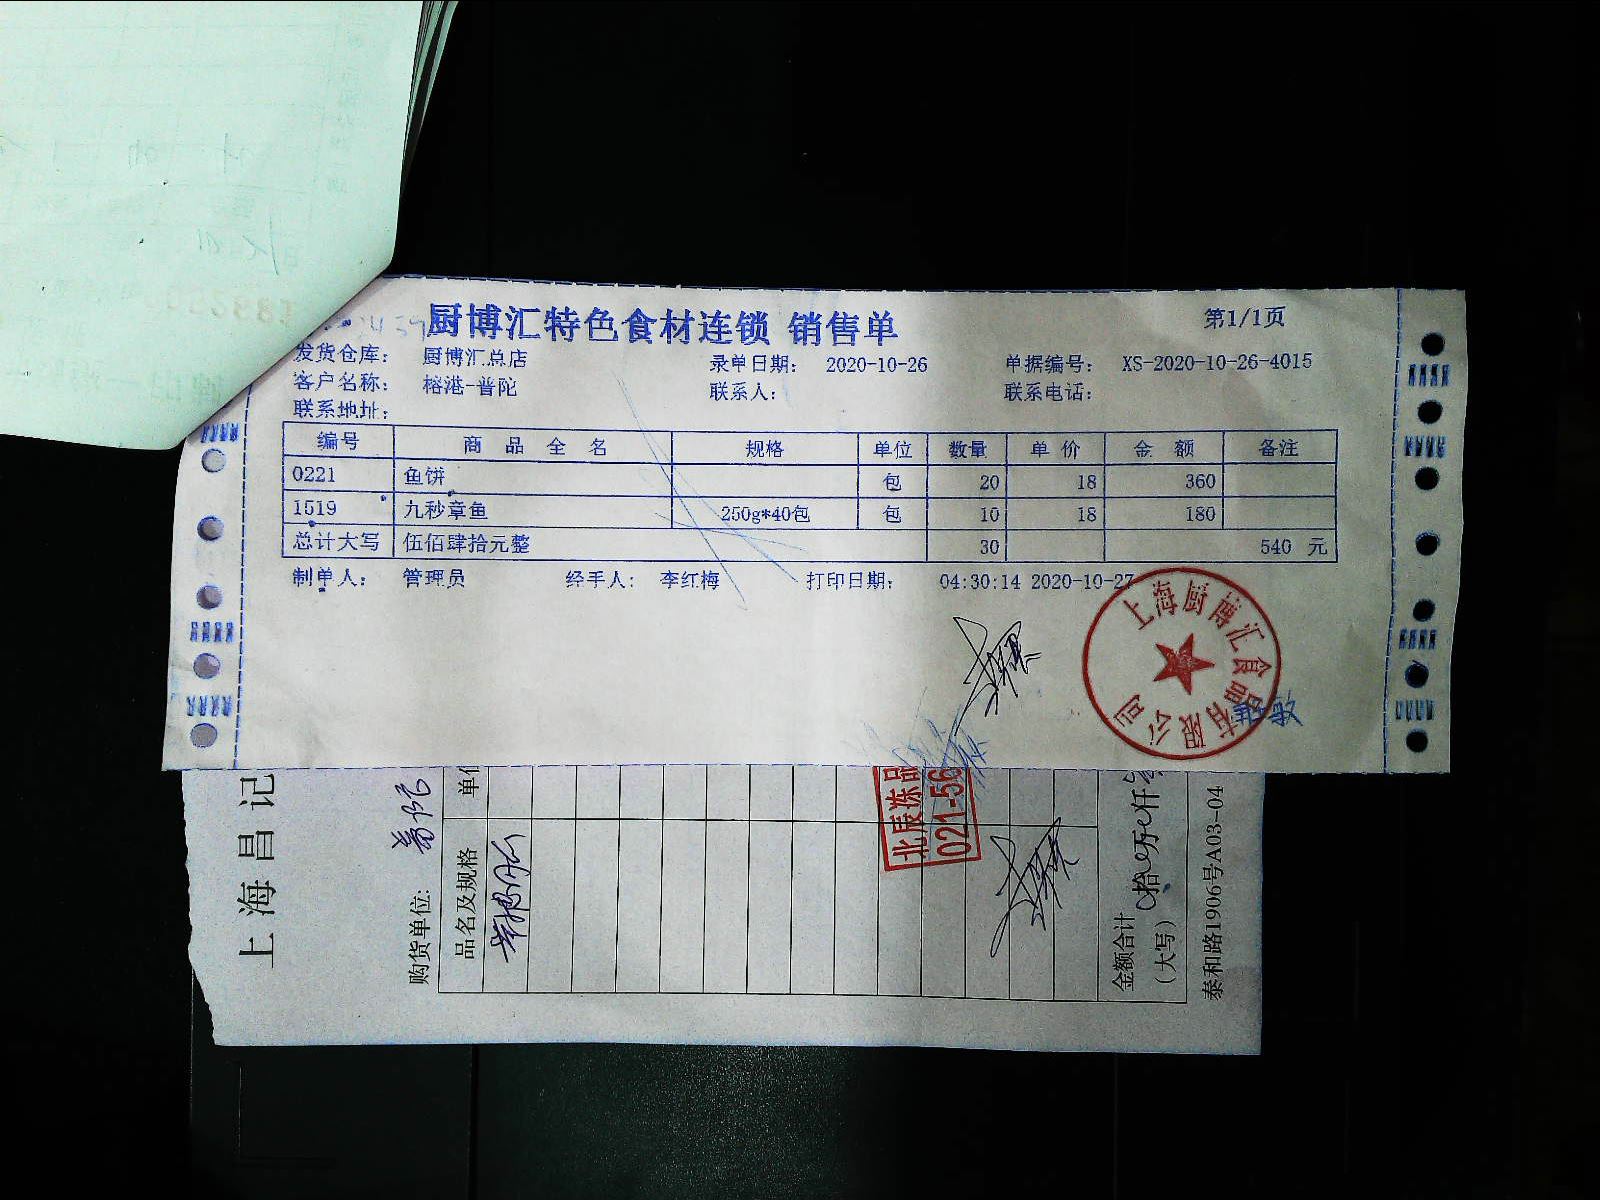 厨博汇特色食材连锁 销售单
第1/1页
发货仓库： 厨博汇总店 录单日期： 2020-10-26 单据编号： XS-2020-10-26-4015
客户名称： 榕港-普陀 联系人： 联系电话：
联系地址：
编号 商品全名 规格 单位 数量 单价 金额 备注
0221 鱼饼 包 20 18 360
1519 九秒章鱼 250g*40包 包 10 18 180
总计大写 伍佰肆拾元整 30 540 元
制单人： 管理员 经手人： 李红梅 打印日期： 04:30:14 2020-10-27
上海厨博汇食品有限公司
上海昌记
购货单位: 普陀
品名及规格 单位
北辰拣品
021-56
金额合计
（大写）
拾 万 仟
泰和路1906号A03-04